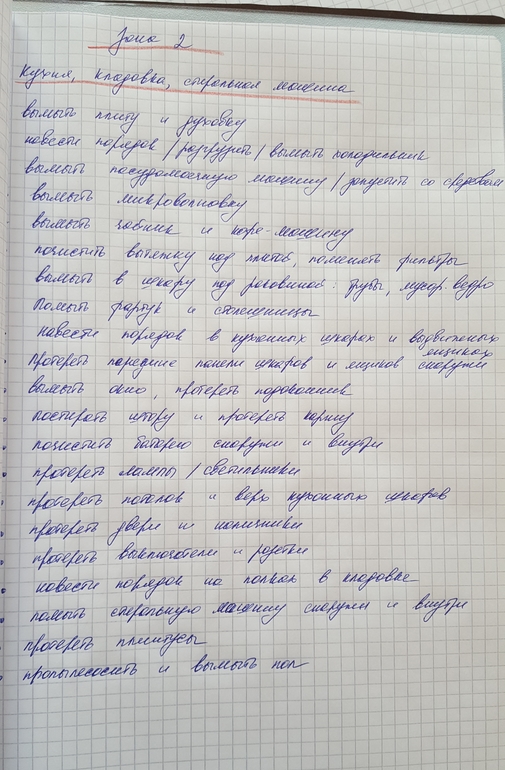 Зона 2
Кухня, кладовка, стиральная машина
вымыть плиту и духовку
навести порядок / разгрузить / вымыть холодильник
вымыть посудомоечную машину / запустить со средством
вымыть микроволновку
вымыть чайник и кофе-машину
почистить вытяжку над плитой, поменять фильтры
вымыть в шкафу под раковиной: трубы, мусор. ведро
Помыть фартук и столешницы
навести порядок в кухонных шкафах и выдвижных
ящиках
протереть передние панели шкафов и ящиков снаружи
вымыть окно, протереть подоконник
постирать штору и протереть карниз
почистить батарею снаружи и внутри
протереть лампы / светильники
протереть потолок и верх кухонных шкафов
протереть двери и наличники
протереть выключатели и розетки
навести порядок на полках в кладовке
помыть стиральную машину снаружи и внутри
протереть плинтусы
пропылесосить и вымыть пол